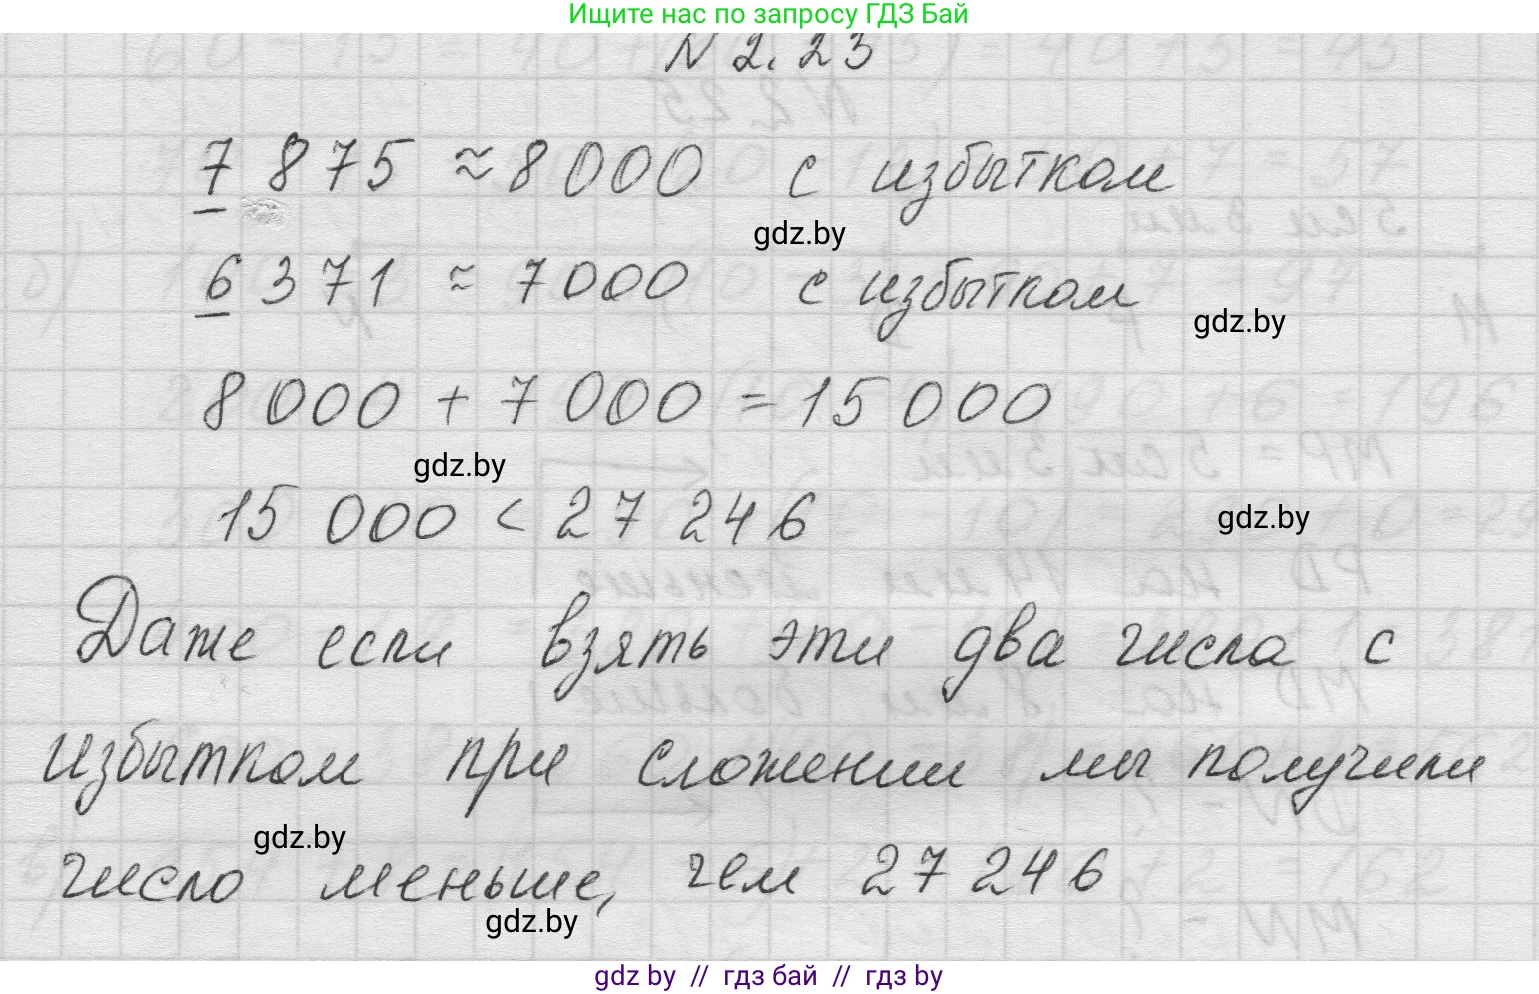 Ищите нас по запросу ГДЗ Бай
N 2.23
7 875 ≈ 8 000 с избытком
gdz.by
6 371 ≈ 7000 с избытком
gdz.by
8 000 + 7 000 = 15 000
gdz.by
15 000 < 27 246
gdz.by
Даже если взять эти два числа с
избытком при сложении мы получили
gdz.by
число меньше, чем 27 246
gdz.by
gdz by // гдз бай // гдз by